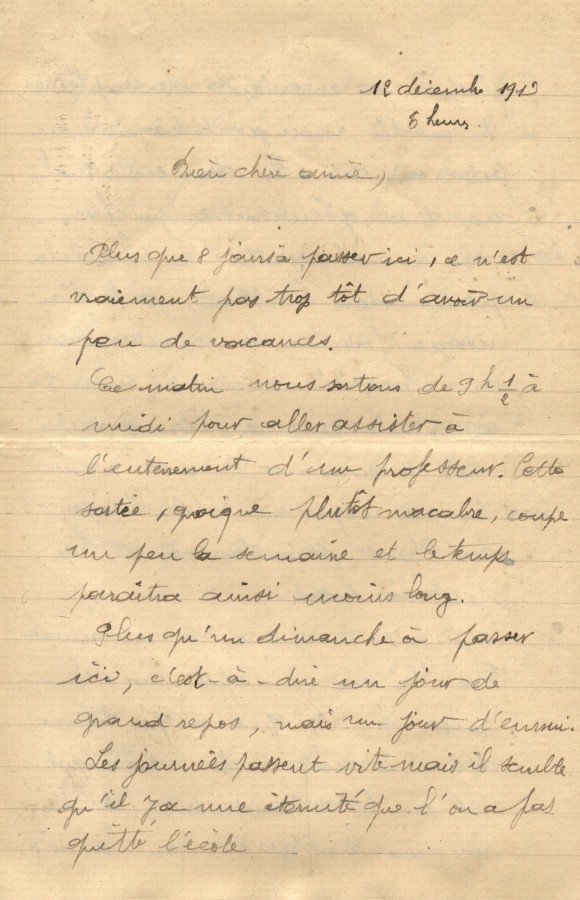 12 décembre 1912
6 heures
Bien chère amie,
Plus que 8 jours à passer ici, ce n'est
vraiement pas trop tôt d'avoir un
peu de vacances.
Ce matin nous sortons de 9 h 1/2 à
midi pour aller assister à
l'enterrement d'un professeur. Cette
sortie, quoique plutôt macabre, coupe
un peu la semaine et le temps
paraîtra ainsi moins long.
Plus qu'un dimanche à passer
ici, c'est-à-dire un jour de
grand repos, mais un jour d'ennui.
Les journées passent vite mais il semble
qu'il y a une éternité que l'on a pas
quitté l'école